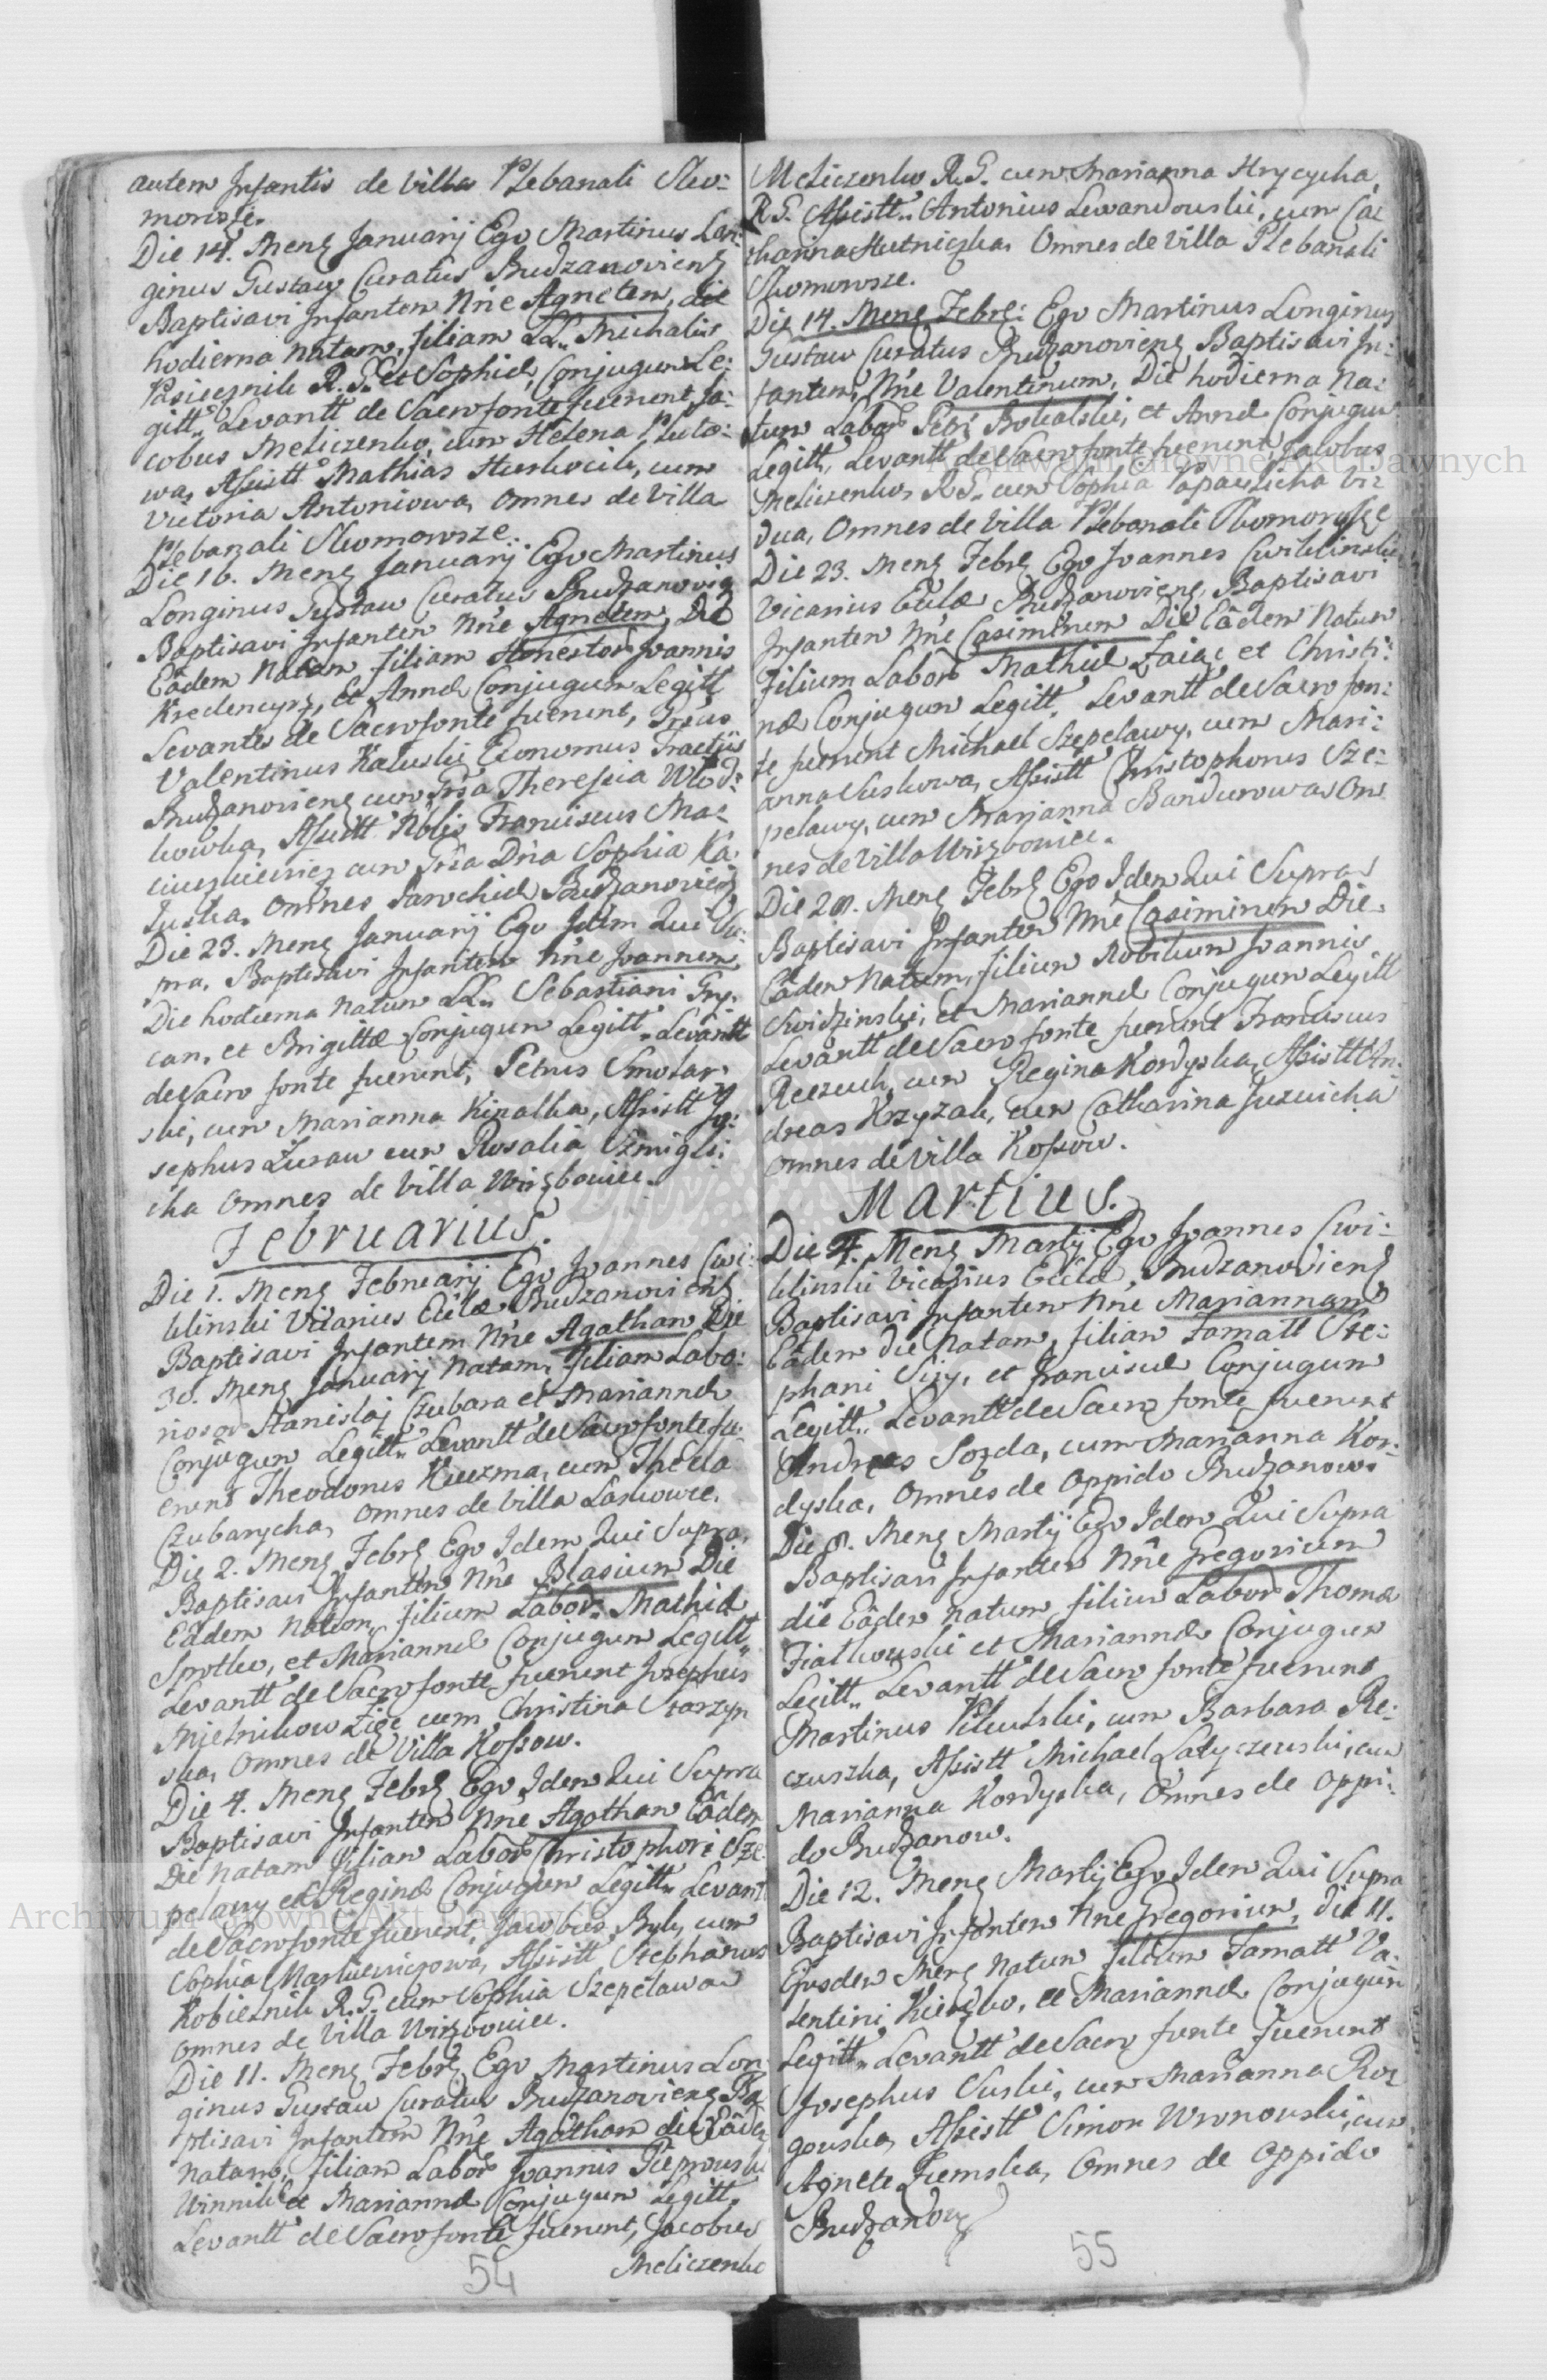 autem Infantis de Villa Plebanali Sko:
morosze.
Die 14. Mens Januarij Ego Martinus Lon:
ginus Gustaw Curatus Budzanoviens
Baptisavi Infantem Nne Agnetem, die
hodierna natam, filiam LL. Michalis
Pasiecznik R. G. et Sophiæ, Conjugum Le:
gitt. Levantt de Sacro fonte fuerunt, Ja:
cobus Meliczenko, cum Helena Pluto:
wa, Assistt Mathias
cum
Victoria Antoniowa, Omnes de Villa
Plebanali Skomorosze.
Die 16. Mens Januarij Ego Martinus
Longinus Gustaw Curatus Budzanovien
Baptisavi Infantem Nne Agnetem, Die
Eâdem Natam filiam Honestor Joannis
Kredencyrz, et Annæ Conjugum Legitt
Levantes de Sacro fonte fuerunt, Gsus
Valentinus Kaluski Economus Tractûs
Budzanoviens cum Gsa Theressia Wlod:
kowka, Assistt Nblis Franciscus Ma:
ciuszkiewicz cum Gsa Dna Sophia Ka:
luska, Omnes Parochiæ Budzanoviens
Die 23. Mens Januarij Ego Idem Qui Su:
pra, Baptisavi Infantem Nne Joannem
Die hodierna Natum LL. Sebastiani Gry:
can, et Brigittæ Conjugum Legitt. Levantt
de Sacro fonte fuerunt, Petrus Smolar:
ski, cum Marianna Kinalka, Assistt Jo:
sephus Zuraw cum Rosalia Szmigls:
cka Omnes de Villa Wirzbowiec.
Februarius.
Die 1. Mens Februarij Ego Joannes Cwi:
klinski Vicarius Eclæ Budzanoviens
Baptisavi Infantem Nne Agatham Die
30. Mens Januarij Natam, filiam Labo:
riosor Stanislaj Czubara et Mariannæ
Conjugum Legitt. Levantt de Sacro fonte fu:
erunt Theodorus Kuczma, cum Thecla
Czubarycha, Omnes de Villa Laskowce.
Die 2. Mens Febrs Ego Idem Qui Supra,
Baptisavi Infantem Nne Blasium Die
Eâdem Natum, filium Labor. Mathiæ
Sprotko, et Mariannæ Conjugum Legitt.
Levantt de Sacro fonte fuerunt Josephus
cum Christina Starzyn
ska, Omnes de Villa Kossow.
Die 4. Mens Febrs Ego Idem Qui Supra
Baptisavi Infantem Nne Agatham Eâdem
Die Natam filiam Labor Christophori Sze:
pelawy et Reginæ Conjugum Legitt. Levant
de Sacro fonte fuerunt, Jacobus Byly cum
Sophia Markiewiczowa, Assistt Stephanus
Kobielnik R. G. cum Sophia Szepelawa
Omnes de Villa Wirzbowiec.
Die 11. Mens Febrs Ego Martinus Lon
ginus Gustaw Curatus Budzanoviens Ba:
ptisavi Infantem Nne Agatham die Eâdem
Natam, filiam Labor Joannis Pieprowski
Winnik et Mariannæ Conjugum Legitt.
Levantt de Sacro fonte fuerunt, Jacobus
Meliczenko
54
Meliczenko R. G. cum Marianna Hrycycha,
R. G. Assistt. Antonius Lewandowski, cum Cat
tharina Hutniczka, Omnes de Villa Plebanali
Skomorosze.
Die 14. Mens Febrs: Ego Martinus Longinus
Gustaw Curatus Budzanoviens Baptisavi In:
fantem, Nne Valentinum, Die hodierna Na:
tum Labor Petri
et Annæ Conjugum
Legitt, Levantt de Sacro fonte fuerunt, Jacobus
Meliczenko, R. G. cum Sophia Papauzicha Vi:
dua, Omnes de Villa Plebanali Skomorosze
Die 23. Mens Febrs Ego Joannes Cwiklinski
Vicarius Eclæ Budzanoviens, Baptisavi
Infantem Nne Casimirum Die Eâdem Natum
filium Labor Mathiæ Zaiąc et Christi:
næ Conjugum Legitt. Levantt de Sacro fon:
te fuerunt Michael Szepelawy, cum Mari:
anna Suskowa, Assistt Christophorus Sze:
pelawy, cum Marjanna Bandurowa Om:
nes de Villa Wirzbowiec.
Die 28. Mens Febrs Ego Idem Qui Supra
Baptisavi Infantem Nne Casimirum Die
Eâdem Natum, filium Nobilium Joannis
Swidzinski, et Mariannæ Conjugum Legitt
Levantt de Sacro fonte fuerunt Franciscus
Reczuch, cum Regina Kordyska, Assistt An:
dreas Krzyzak, cum Catharina Juzwicha
Omnes de Villa Kossow.
Martius.
Die 4. Mens Martij Ego Joannes Cwi:
klinski Vicarius Eclæ Budzanoviens
Baptisavi Infantem Nne Mariannam
Eâdem die Natam, filiam Famatt Ste:
phani Sizy, et Franciscæ Conjugum
Legitt. Levantt de Sacro fonte fuerunt
Andreas Sozda, cum Marianna Kor:
dyska, Omnes de Oppido Budzanow.
Die 8. Mens Martij Ego Idem Qui Supra
Baptisavi Infantem Nne Gregorium
die Eâdem Natum, filium Labor Thomæ
Fialkowski et Mariannæ Conjugum
Legitt. Levantt de Sacro fonte fuerunt
Martinus Kikutski, cum Barbara Re:
czuszka, Assistt Michael Latyczewski, cum
Marianna Kordyska, Omnes de Oppi:
do Budzanow.
Die 12. Mens Martij Ego Idem Qui Supra
Baptisavi Infantem Nne Gregorium, die 11.
Ejusdem Mens Natum filium Famatt Va:
lentini Kierzko, et Mariannæ Conjugum
Legitt. Levantt de Sacro fonte fuerunt
Josephus Suski, cum Marianna Roz
gowska, Assistt Simon Wronowski, cum
Agnete Ziemska, Omnes de Oppido
Budzanow
55
Archiwum Główne Akt Dawnych
Archiwum Główne Akt Dawnych